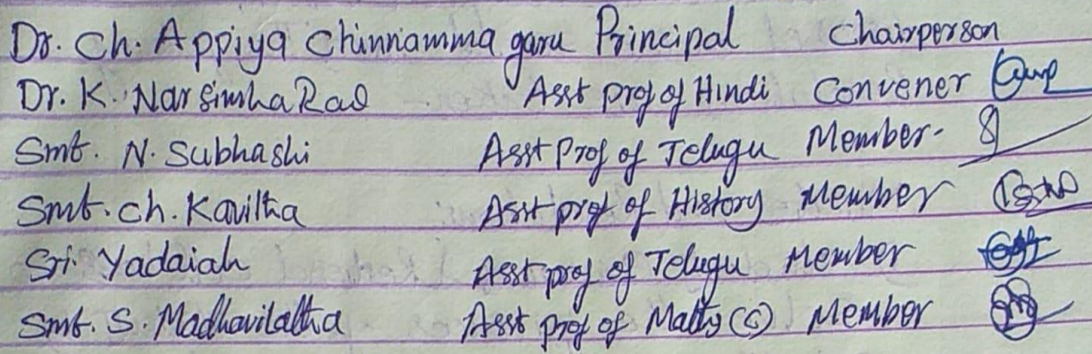 Dr. Ch. Appiya Chinnamma garu Principal Chairperson
Dr. K. Narsimha Rao Asst prof of Hindi Convener
Smt. N. Subhashi Asst Prof of Telugu Member-
Smt. ch. Kavitha Asst prof of History Member
Sri Yadaiah Asst prof of Telugu Member
Smt. S. Madhavilatha Asst prof of Maths (c) Member